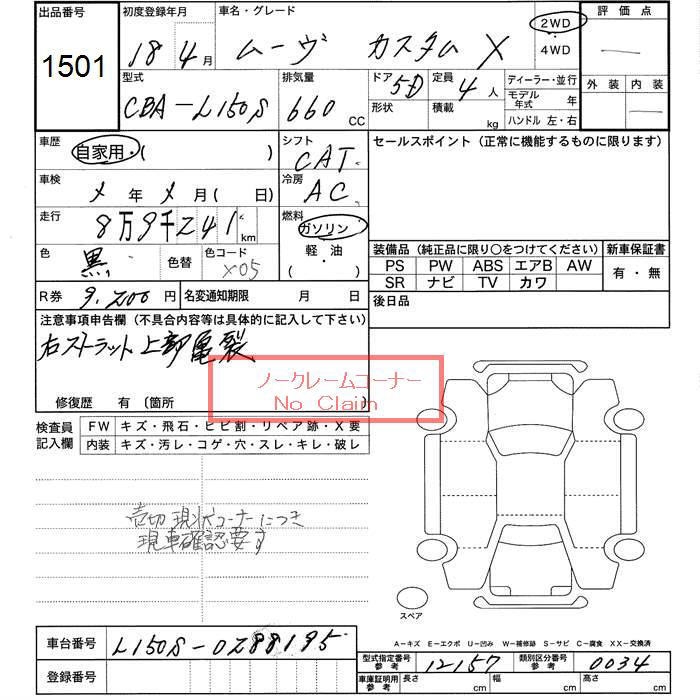 出品番号 初度登録年月 車名・グレード 評価点
1501 18年 4月 ムーヴ カスタム X 2WD 4WD
型式 排気量 ドア 定員 ディーラー・並行 外装 内装
CBA-L150S 660 CC 5D 4人 モデル年式 年
形状 積載 kg ハンドル 左・右
車歴 自家用・( ) シフト CAT セールスポイント (正常に機能するものに限ります)
車検 x年 x月 ( 日) 冷房 AC
走行 8万9千241km 燃料 ガソリン
軽・油
( ・ )
色 黒 色替 色コード X05
装備品 (純正品に限り○をつけてください) 新車保証書
PS PW ABS エアB AW 有・無
SR ナビ TV カワ
R券 9,200円 名変通知期限 月 日 後日品
注意事項申告欄 (不具合内容等は具体的に記入して下さい)
右ストラット上部亀裂
ノークレームコーナー
No Claim
修復歴 有 〔箇所 〕
検査員記入欄 FW キズ・飛石・ヒビ割・リペア跡・X要
内装 キズ・汚レ・コゲ・穴・スレ・キレ・破レ
売切 現状コーナーにつき
現車確認要す
スペア
A-キズ E-エクボ U-凹み W-補修跡 S-サビ C-腐食 XX-交換済
車台番号 L150S-0288195
型式指定番号 参考 12157 類別区分番号 参考 0034
登録番号 車庫証明用 参考 長さ cm 幅 cm 高さ cm